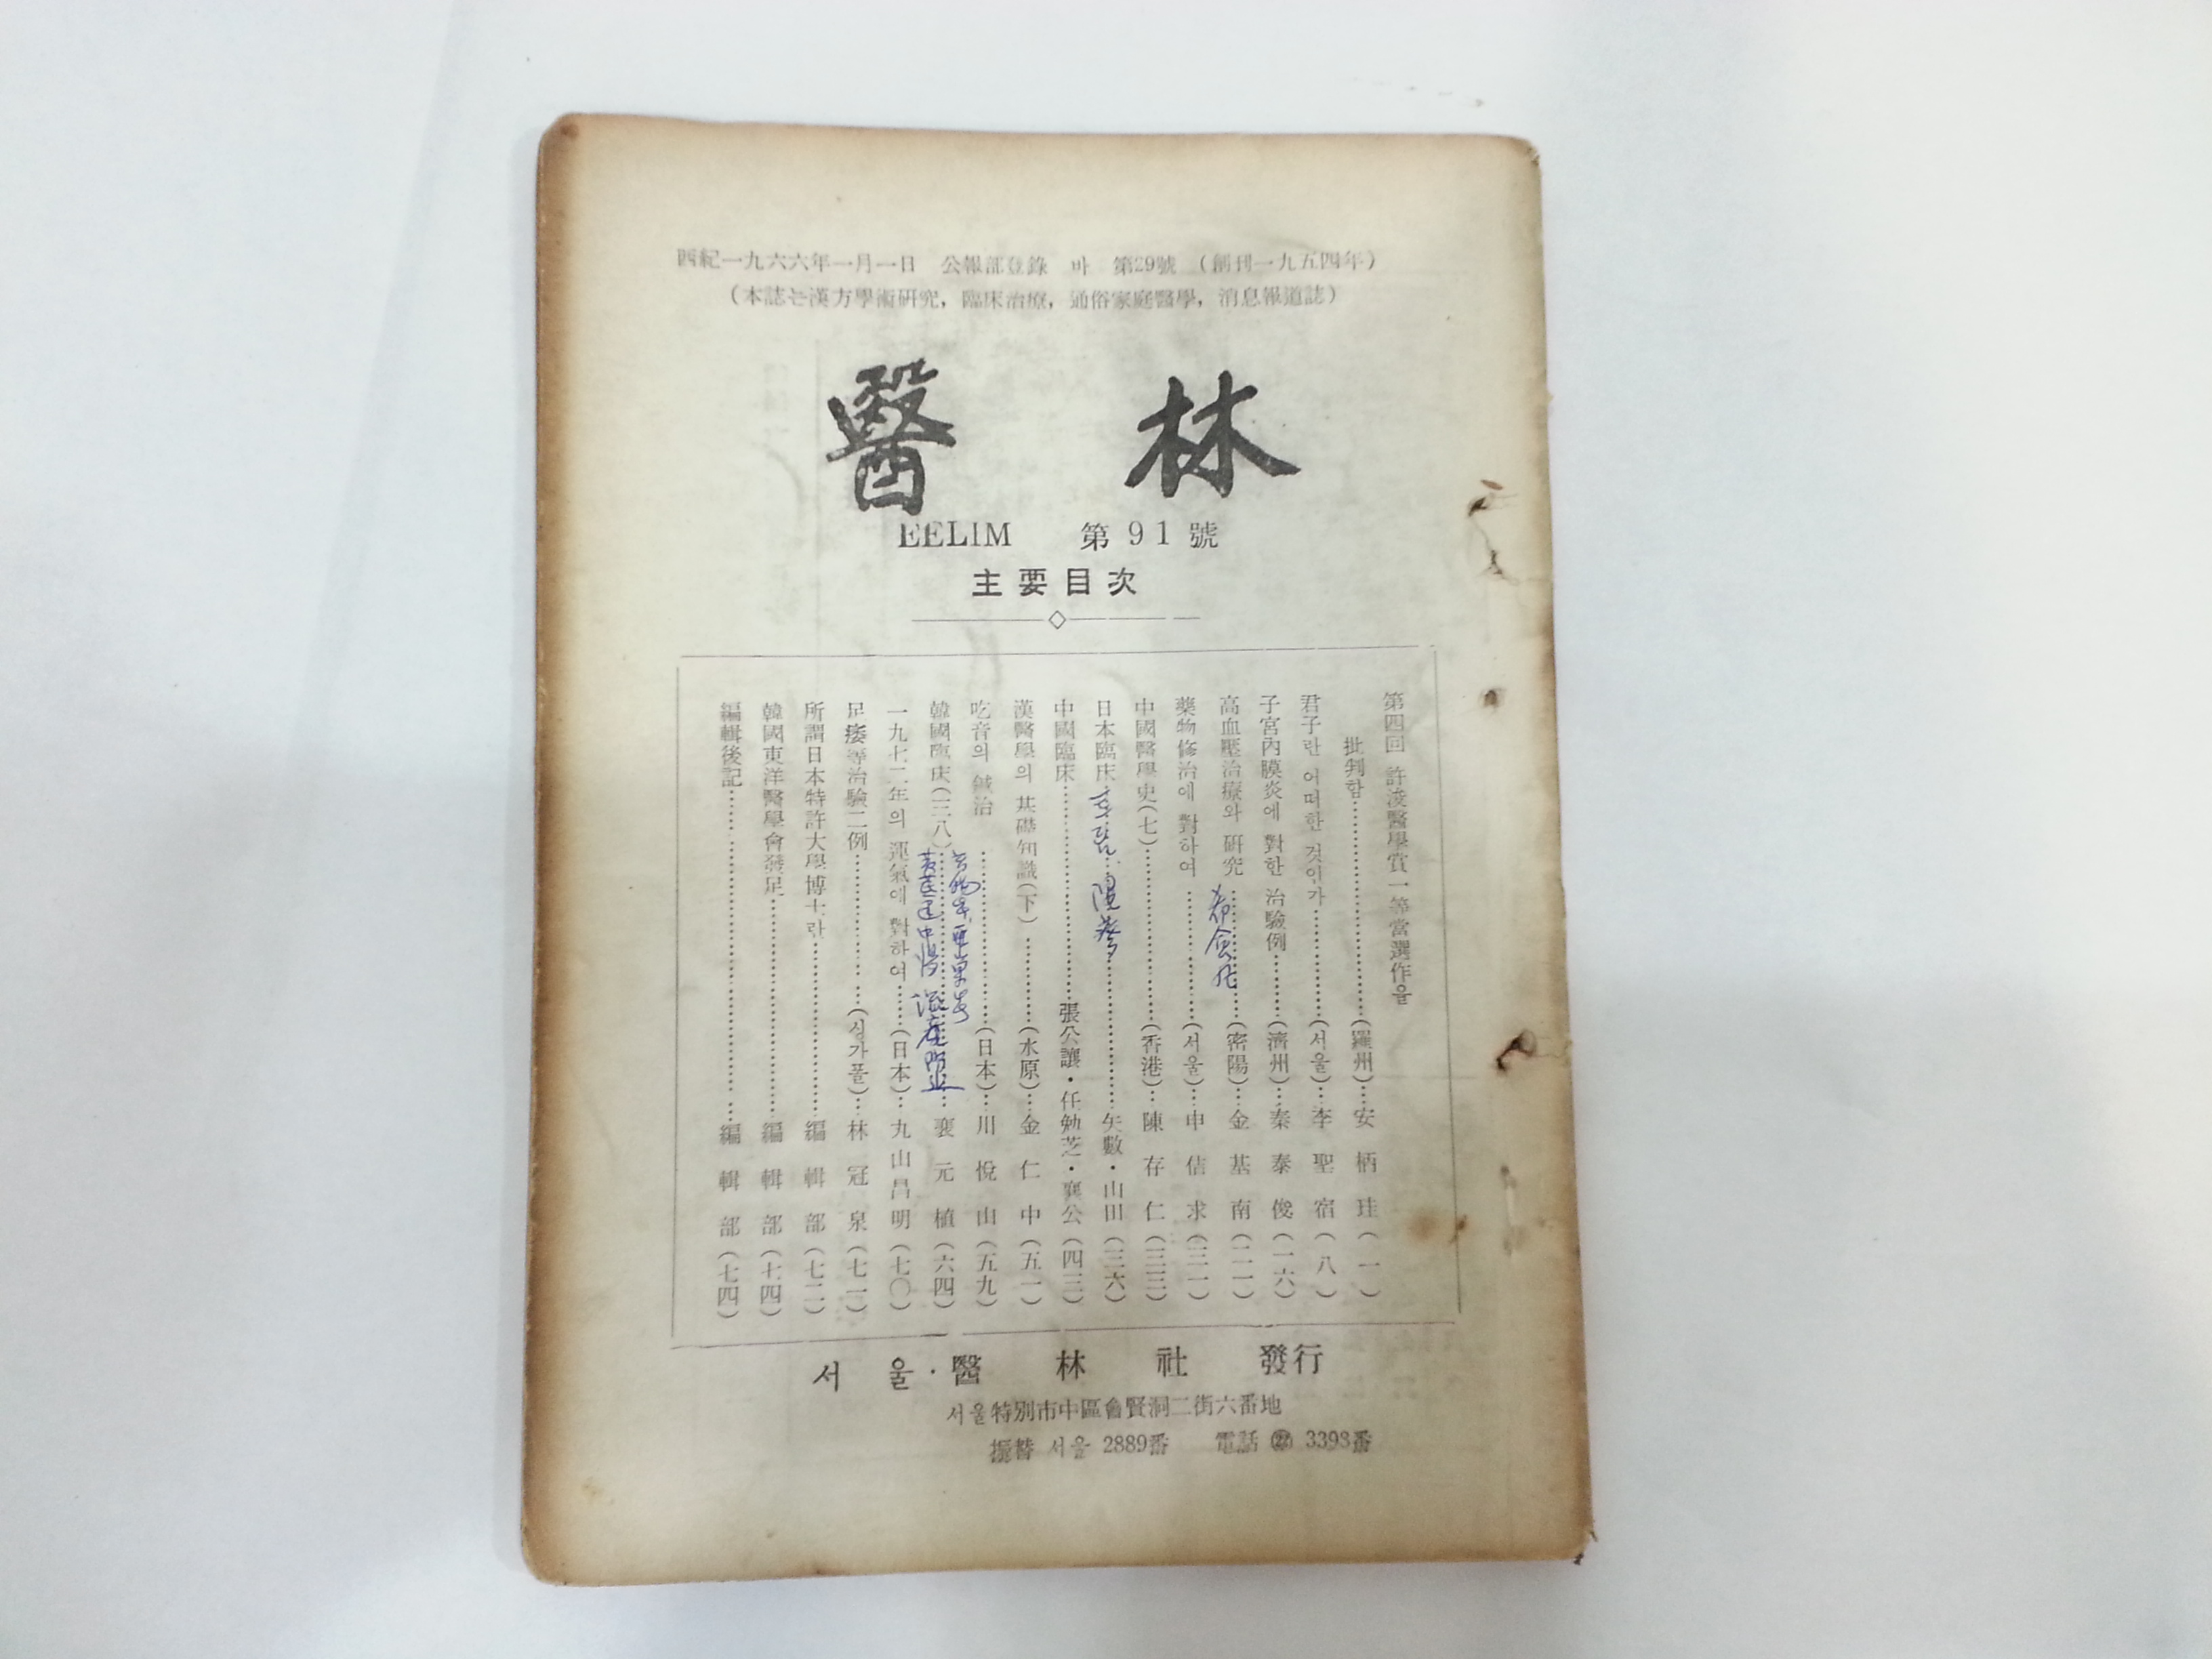 西紀一九六六年一月一日 公報部登錄 바 第29號 (創刊一九五四年)
(本誌는漢方學術硏究, 臨床治療, 通俗家庭醫學, 消息報道誌)
醫 林
EELIM 第91號
主要目次
第四回 許浚醫學賞一等當選作을
批判함……(羅州)…安柄珪(一)
君子란 어떠한 것인가……(서울)…李聖宿(八)
子宮內膜炎에 對한 治驗例……(濟州)…秦泰俊(一六)
高血壓治療와 硏究……(密陽)…金基南(二一)
藥物修治에 對하여……(서울)…申佶求(三一)
中國醫學史(七)……(香港)…陳存仁(三三)
日本臨床……矢數・山田(三六)
中國臨床……張公讓・任勉芝・襄公(四三)
漢醫學의 基礎知識(下)……(水原)…金仁中(五一)
吃音의 鍼治……(日本)…川悅山(五九)
韓國臨床(三八)……裵元植(六四)
一九七二年의 運氣에 對하여……(日本)…九山昌明(七〇)
足痿等治驗二例……(싱가폴)…林冠泉(七一)
所謂日本特許大學博士란……編輯部(七二)
韓國東洋醫學會發足……編輯部(七四)
編輯後記……編輯部(七四)
서울・醫林社 發行
서울特別市中區會賢洞二街六番地
振替 서울 2889番 電話 ㉒ 3393番